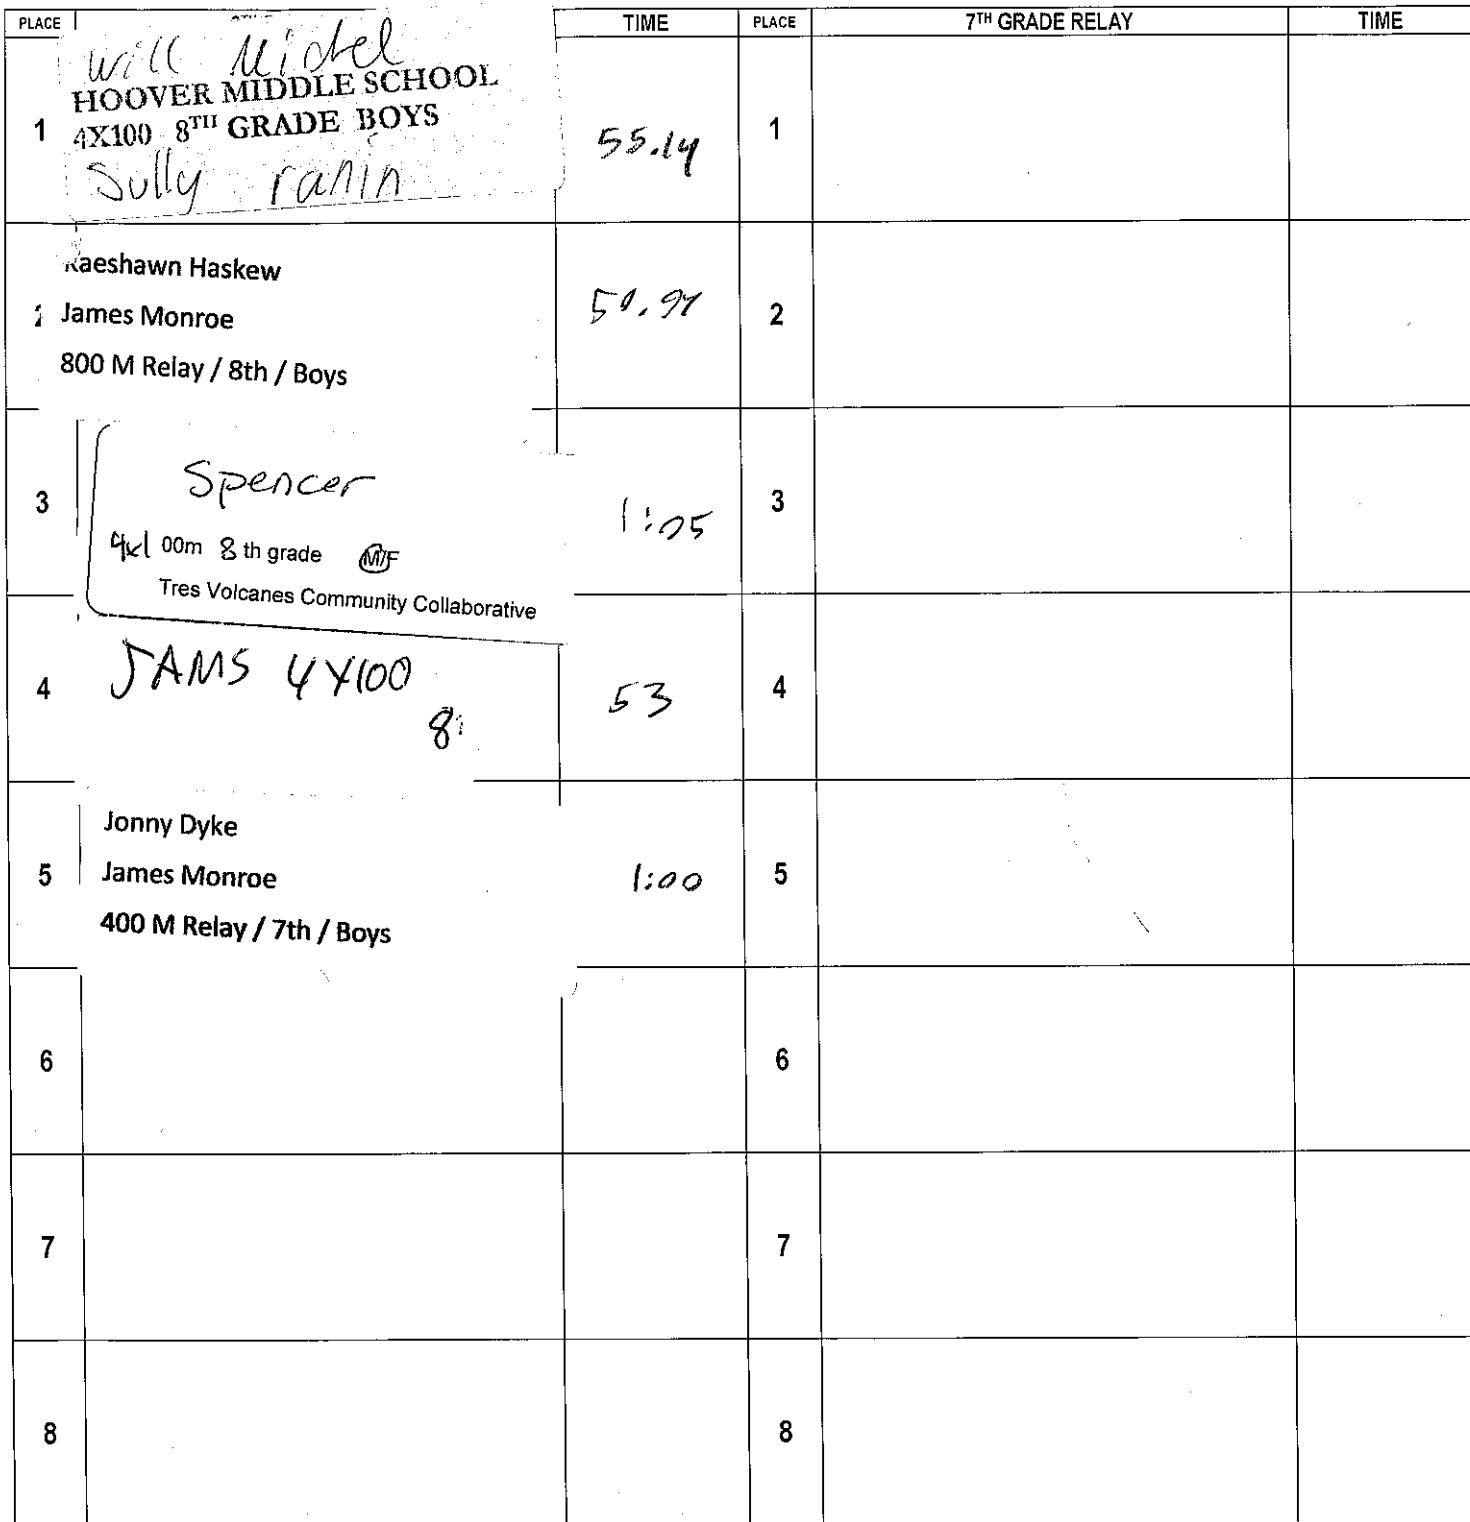 PLACE TIME PLACE 7TH GRADE RELAY TIME
Will
HOOVER MIDDLE SCHOOL
1 4X100 8TH GRADE BOYS 55.14 1
Sully
Raeshawn Haskew
James Monroe 2
800 M Relay / 8th / Boys
Spencer
3 1:05 3
4x100m 8th grade M/F
Tres Volcanes Community Collaborative
4 JAMS 4X100 53 4
8
Jonny Dyke
5 James Monroe 1:00 5
400 M Relay / 7th / Boys
6 6
7 7
8 8